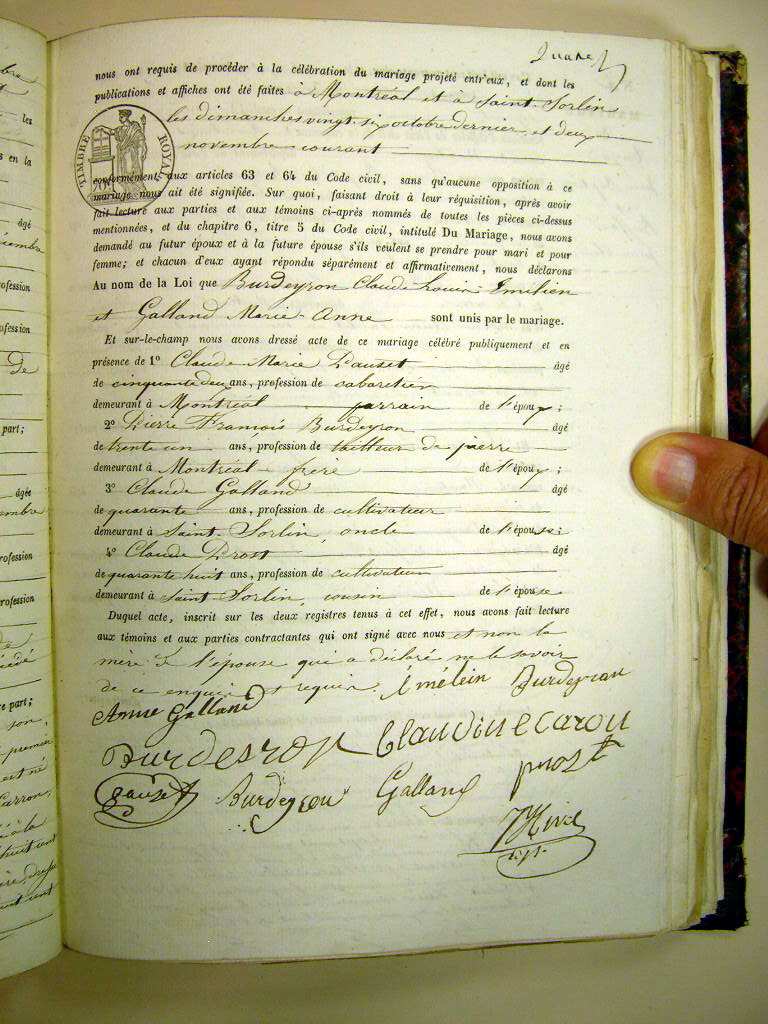 nous ont requis de procéder à la célébration du mariage projeté entr'eux, et dont les
publications et affiches ont été faites à Montréal et à Saint-Sorlin
les dimanches vingt six octobre dernier et deux
novembre courant
TIMBRE ROYAL
conformément aux articles 63 et 64 du Code civil, sans qu'aucune opposition à ce
mariage nous ait été signifiée. Sur quoi, faisant droit à leur réquisition, après avoir
fait lecture aux parties et aux témoins ci-après nommés de toutes les pièces ci-dessus
mentionnées, et du chapitre 6, titre 5 du Code civil, intitulé Du Mariage, nous avons
demandé au futur époux et à la future épouse s'ils veulent se prendre pour mari et pour
femme; et chacun d'eux ayant répondu séparément et affirmativement, nous déclarons
Au nom de la Loi que Burdeyron Claude Louis Emilien
et Galland Marie-Anne sont unis par le mariage.
Et sur-le-champ nous avons dressé acte de ce mariage célébré publiquement et en
présence de 1º Claude Marie Pauset âgé
de cinquante deux ans, profession de cabaretier
demeurant à Montréal parrain de l'époux;
2º Pierre François Burdeyron âgé
de trente un ans, profession de tailleur de pierre
demeurant à Montréal frère de l'époux;
3º Claude Galland âgé
de quarante ans, profession de cultivateur
demeurant à Saint-Sorlin, oncle de l'épouse;
4º Claude Prost âgé
de quarante huit ans, profession de cultivateur
demeurant à Saint-Sorlin, cousin de l'épouse
Duquel acte, inscrit sur les deux registres tenus à cet effet, nous avons fait lecture
aux témoins et aux parties contractantes qui ont signé avec nous et non la
mère de l'épouse qui a déclaré ne le savoir
de ce enquise et requise. Emélein Burdeyron
Anne Galland
Burdeyron Claudine Carou
pauset Burdeyron Galland prost